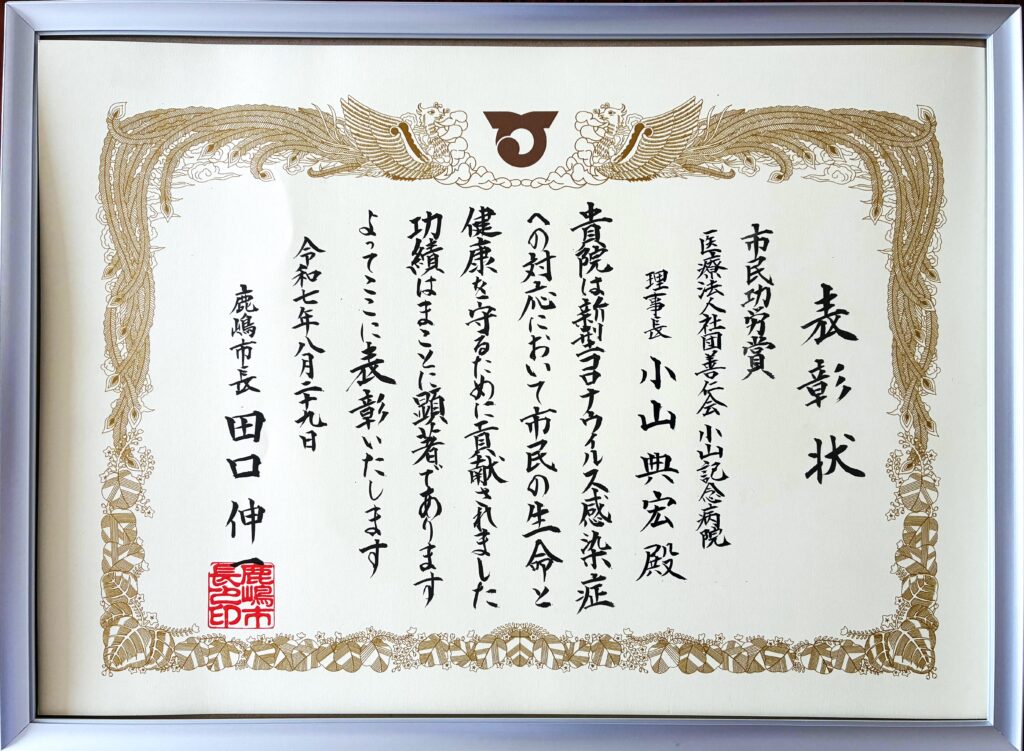 表彰状
市民功労賞
医療法人社団善仁会 小山記念病院
理事長 小山典宏殿
貴院は新型コロナウイルス感染症
への対応において市民の生命と
健康を守るために貢献されました
功績はまことに顕著であります
よってここに表彰いたします
令和七年八月二十九日
鹿嶋市長 田口伸一
鹿嶋市長之印